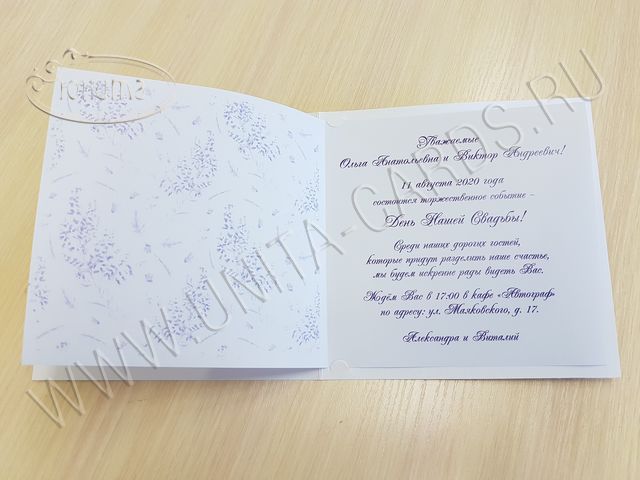 ЮНИТА
Уважаемые
Ольга Анатольевна и Виктор Андреевич!
11 августа 2020 года
состоится торжественное событие –
День Нашей Свадьбы!
Среди наших дорогих гостей,
которые придут разделить наше счастье,
мы будем искренне рады видеть Вас.
Ждём Вас в 17:00 в кафе «Автограф»
по адресу: ул. Маяковского, д. 17.
Александра и Виталий
WWW.UNITA-CARDS.RU